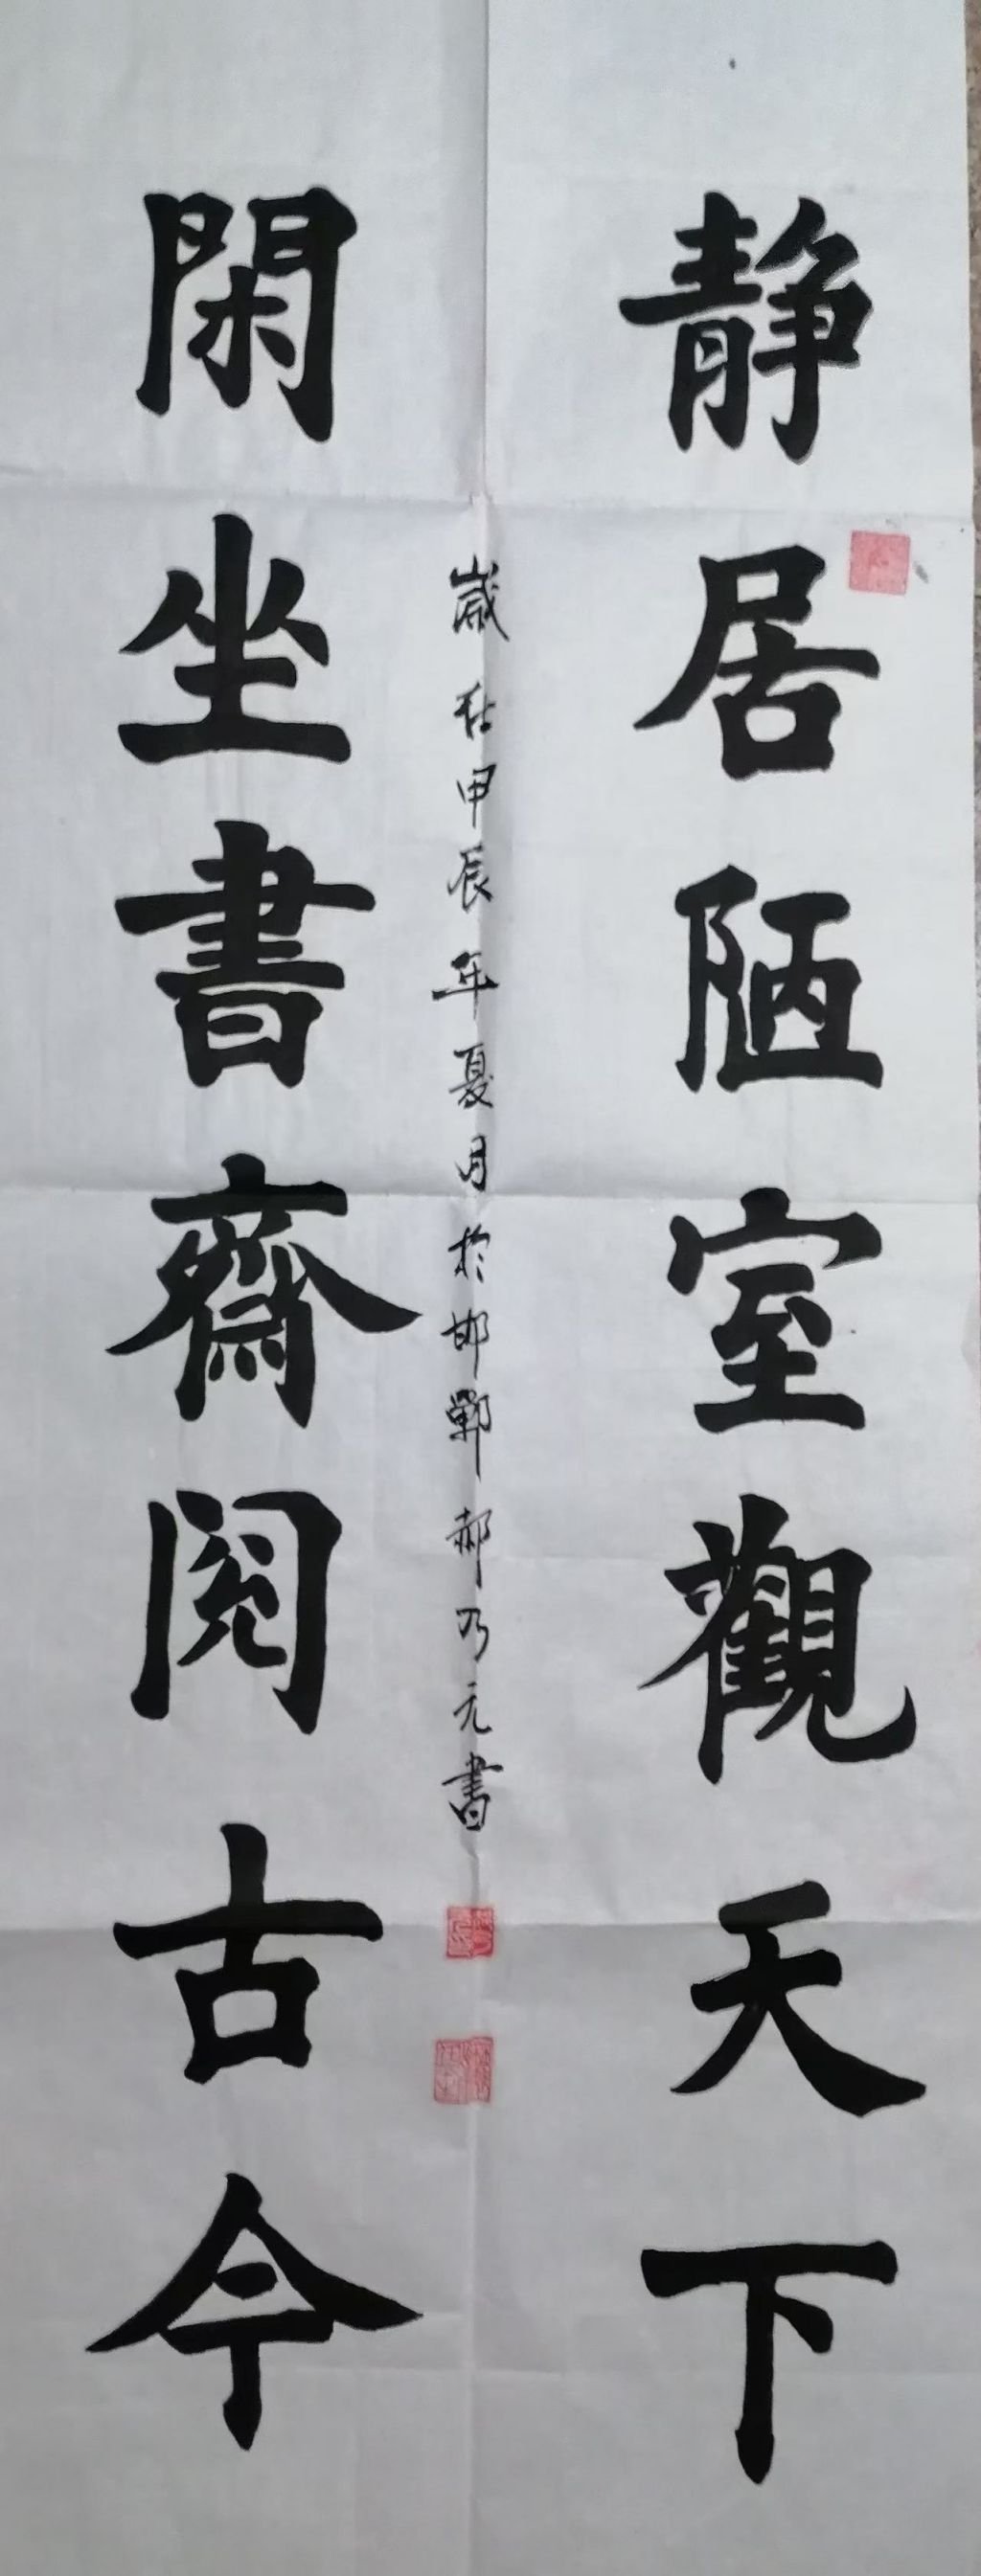 静居陋室觀天下
閑坐書齋閱古今
歲在甲辰年夏月於邯鄲郝乃元書